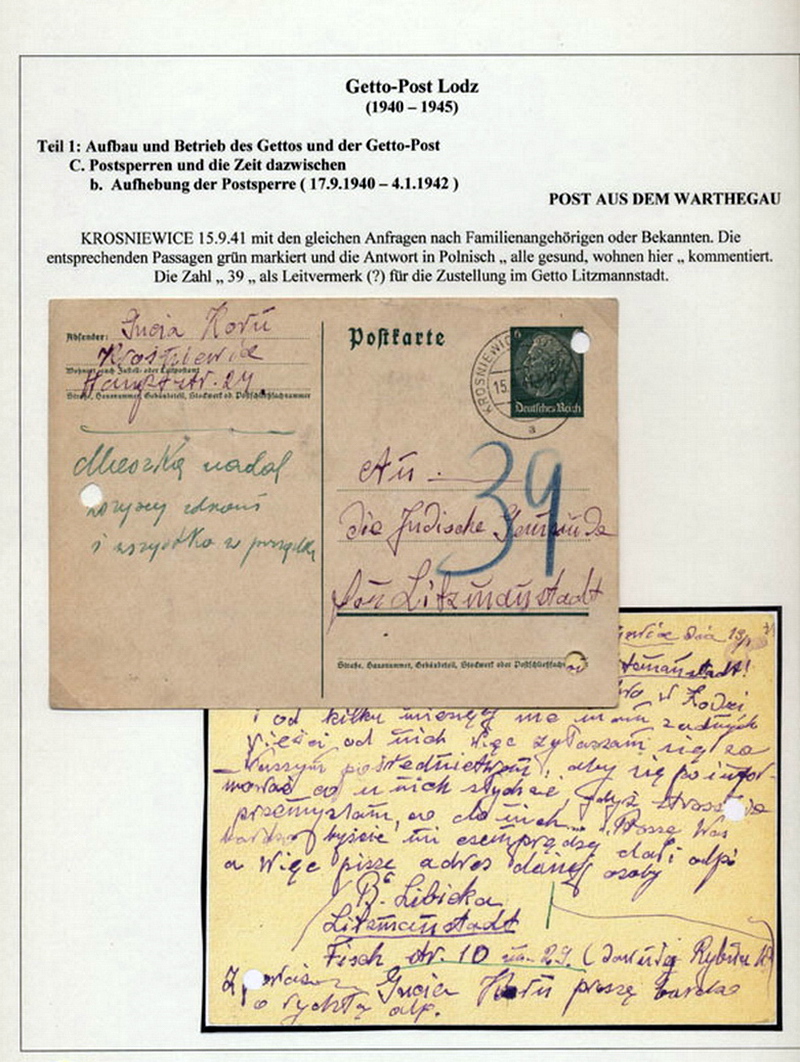 Getto-Post Lodz
(1940 – 1945)
Teil 1: Aufbau und Betrieb des Gettos und der Getto-Post
C. Postsperren und die Zeit dazwischen
b. Aufhebung der Postsperre ( 17.9.1940 – 4.1.1942 )
POST AUS DEM WARTHEGAU
KROSNIEWICE 15.9.41 mit den gleichen Anfragen nach Familienangehörigen oder Bekannten. Die
entsprechenden Passagen grün markiert und die Antwort in Polnisch „ alle gesund, wohnen hier „ kommentiert.
Die Zahl „ 39 „ als Leitvermerk (?) für die Zustellung im Getto Litzmannstadt.
Absender:
Wohnort, auch Zustell- oder Leitpostamt
Straße, Hausnummer, Gebäudeteil, Stockwerk od. Postschließfachnummer
Postkarte
KROSNIEWIC
15.
a
Deutsches Reich
Mieszkają nadal
wszyscy zdrowi
i wszystko w porządku
39
An
die Jüdische Gemeinde
Litzmanstadt
Straße, Hausnummer, Gebäudeteil, Stockwerk oder Postschließfach
w Łodzi
i od kilku miesięcy nie mam żadnych
wieści od nich więc zgłaszam się za
Waszym pośrednictwem, aby się poinfor-
mować co u nich słychać, gdyż
do nich Proszę Was
bardzo byście mi
a więc piszę adres danej osoby
B. Libicka
Litzmanstadt
Fisch str. 10 m. 29. (dawniej Rybna 10)
proszę bardzo
o rychłą odp.